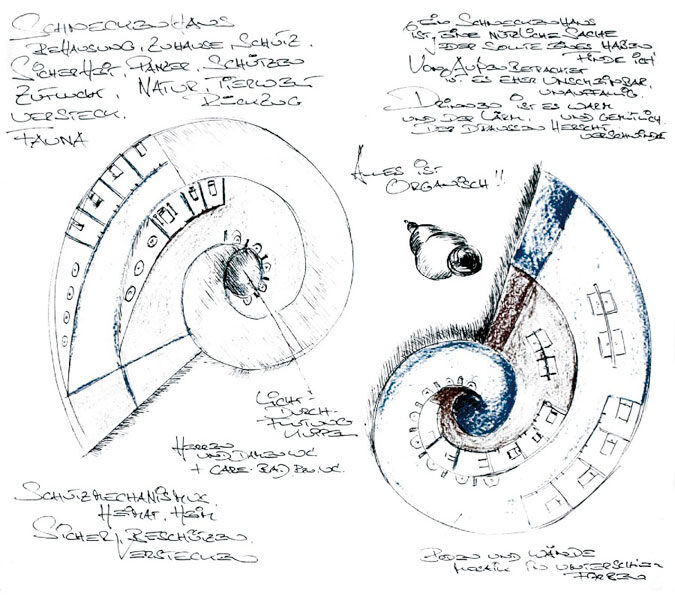 SCHNECKENHAUS
BEHAUSUNG, ZUHAUSE, SCHUTZ.
SICHERHEIT, PANZER, SCHÜTZEN
ZUFLUCHT, NATUR, TIERWELT
RÜCKZUG
VERSTECK.
FAUNA
EIN SCHNECKENHAUS
IST EINE NÜTZLICHE SACHE
JEDER SOLLTE EINES HABEN
FINDE ICH
VON AUSSEN BETRACHTET
IST ES EHER UNSCHEINBAR,
UNAUFFÄLLIG.
DRINNEN IST ES WARM
UND GEMÜTLICH.
UND DER LÄRM,
DER DRAUSSEN HERSCHT
VERSCHWINDET
ALLES IST
ORGANISCH!!
LICHT-
DURCH-
FLUTUNG
KUPPEL
HERREN
UND DAMEN WC
+ CARE. BAD
SCHUTZMECHANISMUS
HEIMAT, HEIM
SICHER, BESCHÜTZEN.
VERSTECKEN
BODEN UND WÄNDE
MOSAIK IN UNTERSCHIED
FARBEN